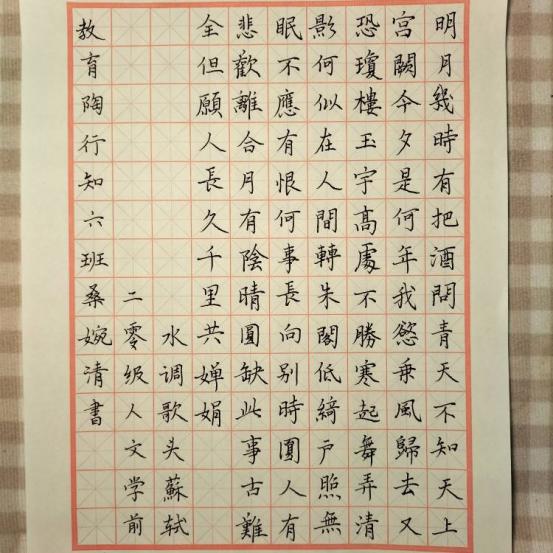 明月幾時有把酒問青天不知天上
宮闕今夕是何年我慾乘風歸去又
恐瓊樓玉宇高處不勝寒起舞弄清
影何似在人間轉朱閣低綺戶照無
眠不應有恨何事長向别時圓人有
悲歡離合月有陰晴圓缺此事古難
全但願人長久千里共嬋娟
水调歌头蘇轼
二零级人文学前
教育陶行知六班桑婉清書